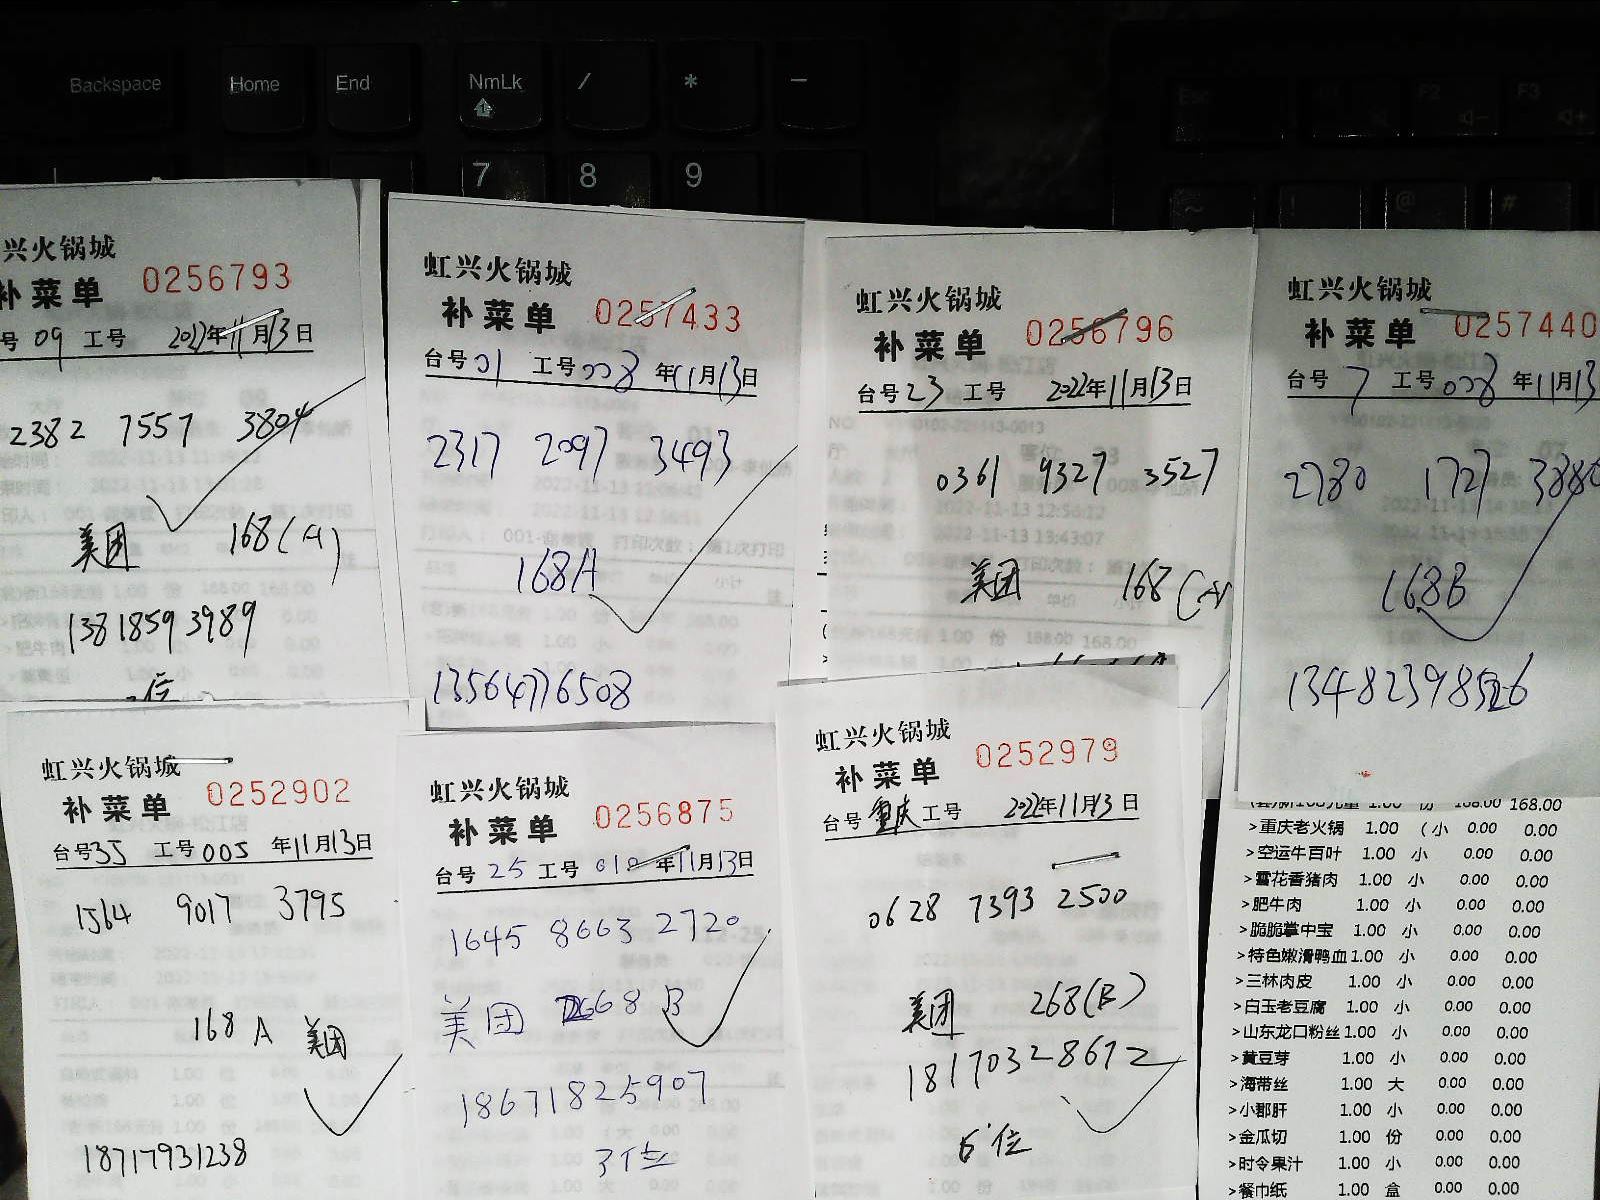 Backspace
Home
End
NmLk
/
*
-
7
8
9
Esc
F2
F3
~
!
@
#
兴火锅城
补菜单 0256793
号 09 工号 2022年11月13日
2382 7557 3804
美团 168(A)
13818593989
虹兴火锅城
补菜单 0257433
台号 01 工号 008 年11月13日
2317 2097 3493
168A
13564776508
虹兴火锅城
补菜单 0256796
台号 23 工号 2022年11月13日
0361 9327 3527
美团 168(A)
虹兴火锅城
补菜单 0257440
台号 7 工号 008 年11月13
2780 1727
168B
虹兴火锅城
补菜单 0252902
台号 35 工号 005 年11月13日
1564 9017 3795
168 A 美团
18717931238
虹兴火锅城
补菜单 0256875
台号 25 工号 010 年11月13日
1645 8663 2720
美团 268 B
18671825907
3位
虹兴火锅城
补菜单 0252979
台号 重庆 工号 2022年11月13日
0628 7393 2500
美团 268(B)
18170328672
6位
1.00 份 168.00 168.00
>重庆老火锅 1.00 (小 0.00 0.00
>空运牛百叶 1.00 小 0.00 0.00
>雪花香猪肉 1.00 小 0.00 0.00
>肥牛肉 1.00 小 0.00 0.00
>脆脆掌中宝 1.00 小 0.00 0.00
>特色嫩滑鸭血 1.00 小 0.00 0.00
>三林肉皮 1.00 小 0.00 0.00
>白玉老豆腐 1.00 小 0.00 0.00
>山东龙口粉丝 1.00 小 0.00 0.00
>黄豆芽 1.00 小 0.00 0.00
>海带丝 1.00 大 0.00 0.00
>小郡肝 1.00 小 0.00 0.00
>金瓜切 1.00 份 0.00 0.00
>时令果汁 1.00 小 0.00 0.00
>餐巾纸 1.00 盒 0.00 0.00